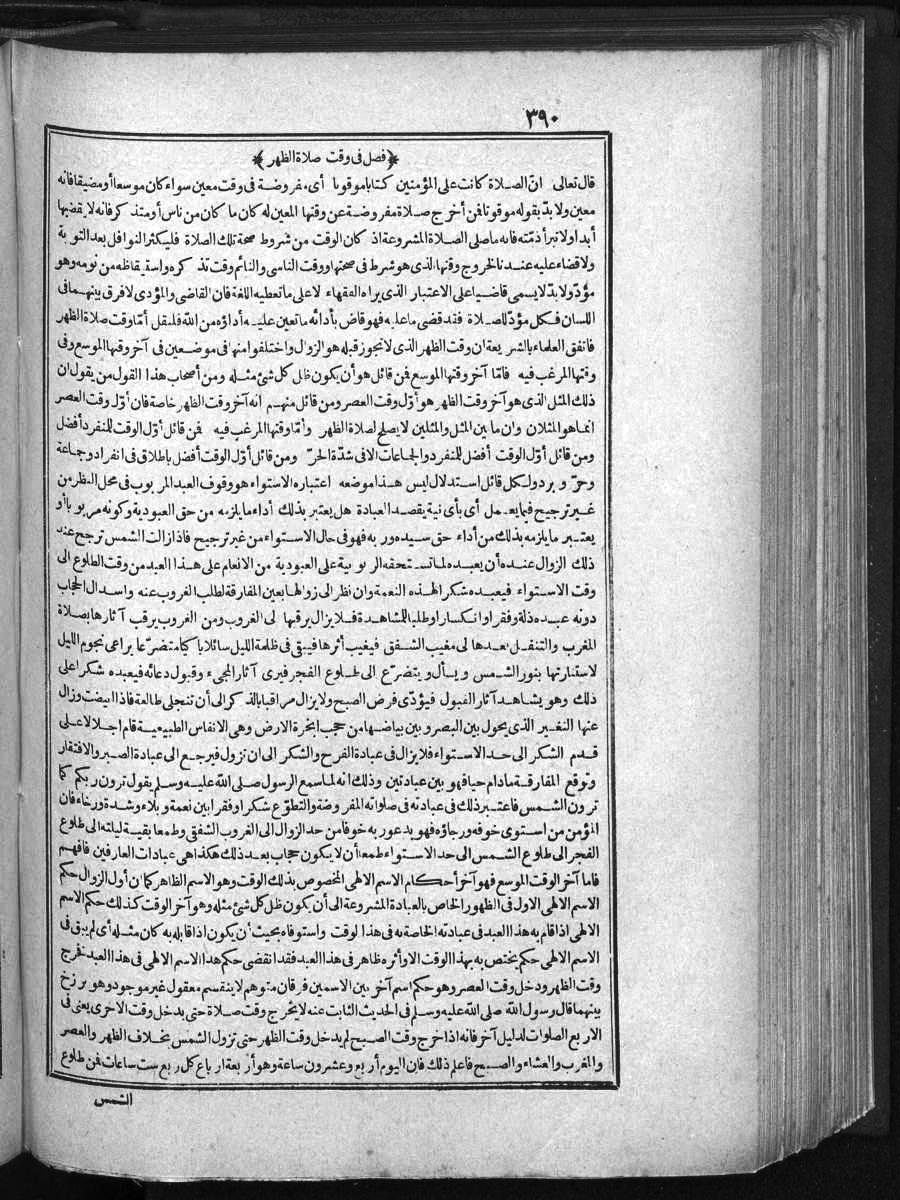 ٣٩٠
﴿ فصل فى وقت صلاة الظهر ﴾
قال تعالى انّ الصلاة كانت على المؤمنين كتابا موقوتا أى مفروضة فى وقت معين سواء كان موسعا أو مضيقا فانه
معين ولا بدّ بقوله موقوتا فمن أخرج صلاة مفروضة عن وقتها المعين له كان ما كان من ناس أو متذكر فانه لا يقضيها
أبدا ولا تبرأ ذمّته فانه ما صلى الصلاة المشروعة اذ كان الوقت من شروط صحة تلك الصلاة فليكثر النوافل بعد التوبة
ولا قضاء عليه عندنا لخروج وقتها الذى هو شرط فى صحتها ووقت الناسى والنائم وقت تذكره واستيقاظه من نومه وهو
مؤدّ ولا بدّ لا يسمى قاضيا على الاعتبار الذى يراه الفقهاء لا على ما تعطيه اللغة فان القاضى والمؤدى لا فرق بينهما فى
اللسان فكل مؤدّ للصلاة فقد قضى ما عليه فهو قاض بأدائه ما تعين عليه أداؤه من الله فلنقل أمّا وقت صلاة الظهر
فاتفق العلماء بالشريعة ان وقت الظهر الذى لا تجوز قبله هو الزوال واختلفوا منها فى موضعين فى آخر وقتها الموسع وفى
وقتها المرغب فيه فامّا آخر وقتها الموسع فمن قائل هو أن يكون ظل كل شئ مثله ومن أصحاب هذا القول من يقول ان
ذلك المثل الذى هو آخر وقت الظهر هو أوّل وقت العصر ومن قائل منهم انه آخر وقت الظهر خاصة فان أوّل وقت العصر
انما هو المثلان وان ما بين المثل والمثلين لا يصلح لصلاة الظهر وأمّا وقتها المرغب فيه فمن قائل أوّل الوقت للمنفرد أفضل
ومن قائل أوّل الوقت أفضل للمنفرد والجاعات الا فى شدّة الحرّ ومن قائل أوّل الوقت أفضل باطلاق فى انفراد وجماعة
وحرّ وبرد ولكل قائل استدلال ليس هذا موضعه اعتباره الاستواء هو وقوف العبد المربوب فى محل النظر من
غير ترجيح فيما يعمل أى بأى نية يقصد العبادة هل يعتبر بذلك أداء ما يلزمه من حق العبودية وكونه مربوبا أو
يعتبر ما يلزمه بذلك من أداء حق سيده وربه فهو فى حال الاستواء من غير ترجيح فاذا زالت الشمس ترجح عند
ذلك الزوال عنده أن يعبده لما تستحقه الربوبية على العبودية من الانعام على هذا العبد من وقت الطلوع الى
وقت الاستواء فيعبده شكرا لهذه النعمة وان نظر الى زوالها بعين المفارقة لطلب الغروب عنه واسدال الحجاب
دونه عبده ذلة وفقرا وانكسارا وطلبا للمشاهدة فلا يزال يرقبها الى الغروب ومن الغروب يرقب آثارها بصلاة
المغرب والتنفل بعدها الى مغيب الشفق فيغيب أثرها فيبقى فى ظلمة الليل سائلا باكيا متضرّعا يراعى نجوم الليل
لاستنارتها بنور الشمس ويسأل ويتضرّع الى طلوع الفجر فيرى آثار المجىء وقبول دعائه فيعبده شكرا على
ذلك وهو يشاهد آثار القبول فيؤدّى فرض الصبح ولا يزال مراقبا بالذكر الى أن تتجلى طالعة فاذا ابيضت وزال
عنها التغيير الذى يحول بين البصر وبين بياضها من حجب ابخرة الارض وهى الانفاس الطبيعية قام اجلالا على
قدم الشكر الى حد الاستواء فلا يزال فى عبادة الفرح والشكر الى ان تزول فيرجع الى عبادة الصبر والافتقار
وتوقع المفارقة مادام حيا فهو بين عبادتين وذلك انه لما سمع الرسول صلى الله عليه وسلم يقول ترون ربكم كما
ترون الشمس فاعتبر ذلك فى عبادته فى صلواته المفروضة والتطوّع شكرا وفقرا بين نعمة وبلاء وشدة ورخاء فان
المؤمن من استوى خوفه ورجاؤه فهو يدعو ربه خوفا من حد الزوال الى الغروب الشفقى وطمعا بقية ليلته الى طلوع
الفجر الى طلوع الشمس الى حد الاستواء طمعا أن لا يكون حجاب بعد ذلك هكذا هى عبادات العارفين فافهم
فاما آخر الوقت الموسع فهو آخر أحكام الاسم الالهى المخصوص بذلك الوقت وهو الاسم الظاهر كما ان أول الزوال حكم
الاسم الالهى الاول فى الظهور الخاص بالعبادة المشروعة الى أن يكون ظل كل شئ مثله وهو آخر الوقت كذلك حكم الاسم
الالهى اذا قام به هذا العبد فى عبادته الخاصة به فى هذا لوقت واستوفاه بحيث أن يكون اذا قابله به كان مثله أى لم يبق فى
الاسم الالهى حكم يختص به بهذا الوقت الا وأثره ظاهر فى هذا العبد فقد انقضى حكم هذا الاسم الالهى فى هذا العبد فخرج
وقت الظهر ودخل وقت العصر وهو حكم اسم آخر بين الاسمين فرقان متوهم لا ينقسم معقول غير موجود وهو برزخ
بينهما قال رسول الله صلى الله عليه وسلم فى الحديث الثابت عنه لا يخرج وقت صلاة حتى يدخل وقت الاخرى يعنى فى
الاربع الصلوات لدليل آخر فانه اذا خرج وقت الصبح لم يدخل وقت الظهر حتى تزول الشمس بخلاف الظهر والعصر
والمغرب والعشاء والصبح فاعلم ذلك فان اليوم أربع وعشرون ساعة وهو أربعة ارباع كل ربع ست ساعات فمن طلوع
الشمس